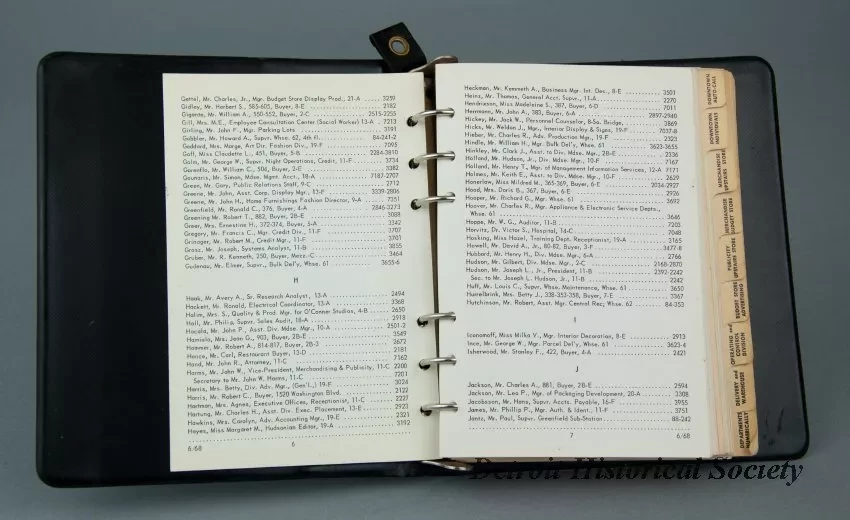 Gettel, Mr. Charles, Jr., Mgr. Budget Store Display Prod., 21-A .... 3259
Gidley, Mr. Herbert S., 585-605, Buyer, 8-E .... 2182
Gigante, Mr. William A., 550-552, Buyer, 2-C .... 2515-2255
Gill, Mrs. M.E., Employee Consultation Center (Social Worker) 13-A . 7213
Girling, Mr. John F., Mgr. Parking Lots .... 3191
Gobblen, Mr. Howard A., Supvr. Whse. 62, 4th fl. .... 84-241-2
Goddard, Mrs. Marge, Art Dir. Fashion Div., 19-F .... 7095
Goff, Miss Claudette L., 451, Buyer, 5-B .... 2284-3810
Golm, Mr. George W., Supvr. Night Operations, Credit, 11-F .... 3734
Garanflo, Mr. William C., 504, Buyer, 2-E .... 3382
Gounaris, Mr. Simon, Mdse. Mgmt. Acct., 18-A .... 7187-2707
Green, Mr. Gary, Public Relations Staff, 9-C .... 2712
Greene, Mr. John, Asst. Corp. Display Mgr., 13-F .... 3339-2806
Greene, Mr. John H., Home Furnishings Fashion Director, 9-A .... 7351
Greenfield, Mr. Ronald C., 376, Buyer, 4-A .... 2846-3273
Greening Mr. Robert T., 882, Buyer, 2B-E .... 3088
Greer, Mrs. Ernestine H., 372-374, Buyer, 5-A .... 3342
Gregory, Mr. Francis C., Mgr. Credit Div., 11-F .... 3707
Grinager, Mr. Robert M., Credit Mgr., 11-F .... 3701
Grosz, Mr. Joseph, Systems Analyst, 11-B .... 3855
Gruber, Mr. R. Kenneth, 250, Buyer, Mezz.-C .... 3464
Gudenau, Mr. Elmer, Supvr., Bulk Del'y, Whse. 61 .... 3655-6
H
Haak, Mr. Avery A., Sr. Research Analyst, 13-A .... 2494
Hackett, Mr. Ronald, Electrical Coordinator, 13-A .... 3368
Halim, Mrs. S., Quality & Prod. Mgr. for O'Conner Studios, 4-B .... 2650
Hall, Mr. Philip, Supvr. Sales Audit, 18-A .... 2918
Hacala, Mr. John P., Asst. Div. Mdse. Mgr., 10-A .... 2501-2
Hamiola, Mrs. Jane G., 903, Buyer, 2B-E .... 3549
Hammer, Mr. Robert A., 814-817, Buyer, 2B-3 .... 3672
Hance, Mr. Carl, Restaurant Buyer, 13-D .... 2181
Hand, Mr. John R., Attorney, 11-C .... 7162
Harms, Mr. John W., Vice-President, Merchandising & Publicity, 11-C 2200
Secretary to Mr. John W. Harms, 11-C .... 7201
Harris, Mrs. Betty, Div. Adv. Mgr., (Gen'l.,) 19-F .... 3024
Harris, Mr. Robert C., Buyer, 1520 Washington Blvd. .... 2122
Hartman, Mrs. Agnes, Executive Offices, Receptionist, 11-C .... 2227
Hartung, Mr. Charles H., Asst. Div. Exec. Placement, 13-E .... 2923
Hawkins, Mrs. Carolyn, Adv. Accounting Mgr., 19-E .... 2321
Hayes, Miss Margaret M., Hudsonian Editor, 19-A .... 3192
6/68
6
Heckman, Mr. Kenneth A., Business Mgr. Int. Dec., 8-E .... 3501
Heinz, Mr. Thomas, General Acct. Supvr., 11-A .... 2270
Hendrieson, Miss Madeleine S., 387, Buyer, 6-D .... 7011
Herrmann, Mr. John A., 383, Buyer, 6-A .... 2897-2940
Hickey, Mr. Jack W., Personnel Counselor, 8-Sa. Bridge, .... 3869
Hicks, Mr. Weldon J., Mgr., Interior Display & Signs, 19-F .... 7037-8
Hieber, Mr. Charles R., Adv. Production Mgr., 19-F .... 2323
Hindle, Mr. William H., Mgr. Bulk Del'y, Whse. 61 .... 3623-3655
Hinkley, Mr. Clark J., Asst. to Div. Mdse. Mgr., 2B-E .... 2336
Holland, Mr. Hudson, Jr., Div. Mdse. Mgr., 10-F .... 7167
Holland, Mr. Henry T., Mgr. of Management Information Services, 12-A 7171
Holmes, Mr. Keith E., Asst. to Div. Mdse. Mgr., 10-F .... 2629
Honerlaw, Miss Mildred W., 365-369, Buyer, 6-E .... 2034-2927
Hood, Mrs. Doris B., 367, Buyer, 6-E .... 2926
Hooper, Mr. Richard G., Mgr. Whse. 61 .... 3692
Hoover, Mr. Charles R., Mgr. Appliance & Electronic Service Depts.,
Whse. 61 .... 3646
Hoppe, Mr. W. G., Auditor, 11-B .... 7203
Horvitz, Dr. Victor S., Hospital, 14-C .... 7048
Hosking, Miss Hazel, Training Dept. Receptionist, 19-A .... 3165
Howell, Mr. David A., Jr., 80-82, Buyer, 3-F .... 3477-8
Hubbard, Mr. Henry H., Div. Mdse. Mgr., 6-A .... 2766
Hudson, Mr. Gilbert, Div. Mdse. Mgr., 2-C .... 2168-2870
Hudson, Mr. Joseph L., Jr., President, 11-B .... 2392-2242
Sec. to Mr. Joseph L. Hudson, Jr., 11-B .... 2242
Huff, Mr. Louis C., Supvr. Whse. Maintenance, Whse. 61 .... 3650
Hurrelbrink, Mrs. Betty J., 338-353-358, Buyer, 7-E .... 3367
Hutchinson, Mr. Robert, Asst. Mgr. Central Rec; Whse. 62 .... 84-353
I
Iconomoff, Miss Milka V., Mgr. Interior Decoration, 8-E .... 2913
Ince, Mr. George W., Mgr. Parcel Del'y, Whse. 61 .... 3623-4
Isherwood, Mr. Stanley F., 422, Buyer, 4-A .... 2421
J
Jackson, Mr. Charles A., 881, Buyer, 2B-E .... 2594
Jackson, Mr. Leo P., Mgr. of Packaging Development, 20-A .... 3308
Jacobson, Mr. Hans, Supvr. Accts. Payable, 16-F .... 3955
James, Mr. Phillip P., Mgr. Auth. & Ident., 11-F .... 3751
Jantz, Mr. Paul, Supvr. Greenfield Sub-Station .... 88-242
7
6/68
DOWNTOWN AUTO-CALL
DOWNTOWN INDIVIDUALS
MERCHANDISE UPSTAIRS STORE
MERCHANDISE BUDGET STORE
PUBLICITY UPSTAIRS STORE
BUDGET STORE ADVERTISING
OPERATING and CONTROL DIVISION
DELIVERY and WAREHOUSE
DEPARTMENTS NUMERICALLY
Detroit Historical Society